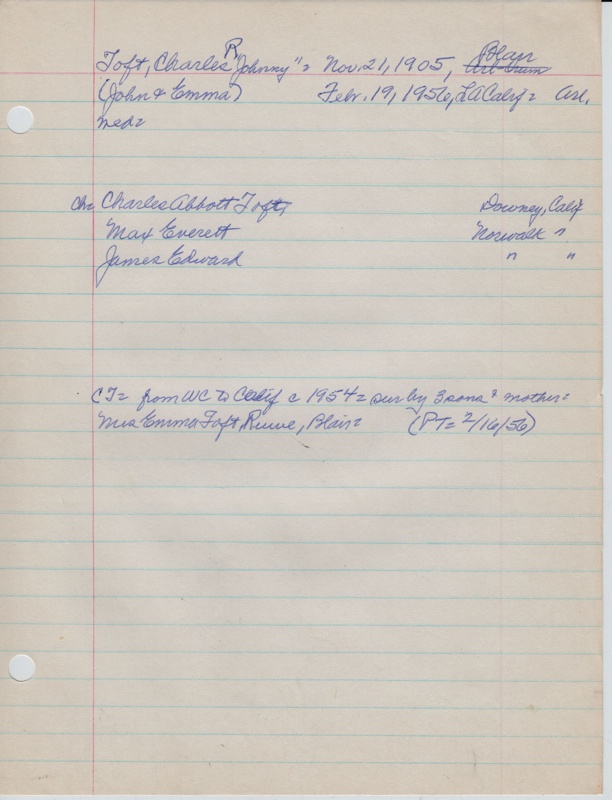 Toft, Charles R "Johnny" = Nov. 21, 1905, Blair
(John & Emma) Febr. 19, 1956, LA Calif = Arl,
ned=
ch= Charles Abbott Toft, Downey, Calif
Max Everett Norwalk "
James Edward " "
CT= from WC to Calif c 1954 = sur by 3 sons & mother=
Mrs Emma Toft Ruwe, Blair= (PT= 2/16/56)